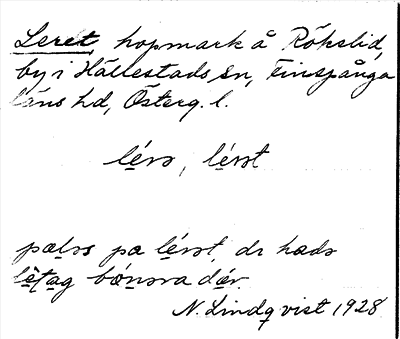 Leret, hopmark å Rökslid,
by i Hällestads sn, Finspånga
läns hd, Österg. l.
lérə, lérət
pælss pa lérət, dr hadə
lètag bónərа dér.
N. Lindqvist 1928